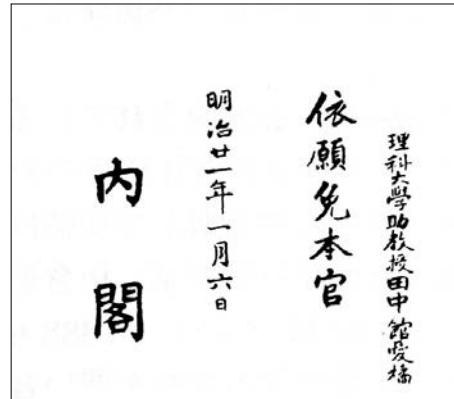 理科大學助教授田中館愛橘
依願免本官
明治廿一年一月六日
内閣